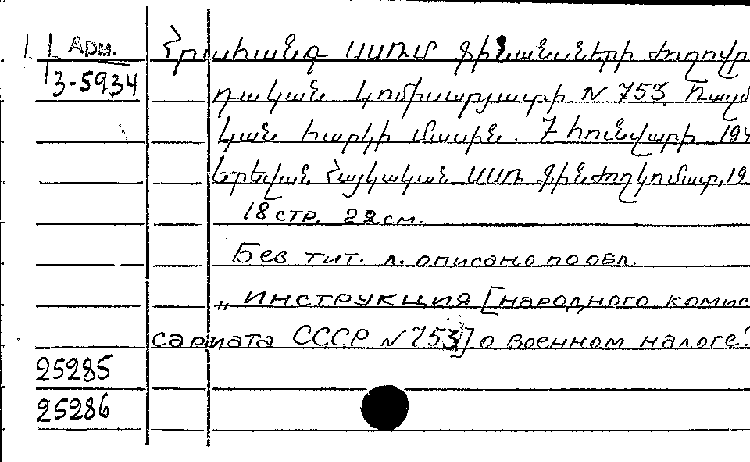 Арм. Հրահանգ ՍՍՌՄ Ֆինանսների ժողովր
13-5934
դական կոմիսարյատի N 753. Ռազմ
կան հարկի մասին. 7 հունվարի 194
Երեվան Հայկական ՍՍՌ Ֆինժողկոմատ, 19
18 стр. 22 см.
Без тит. л. описано по обл.
„Инструкция [народного комис
сариата СССР N 753] о военном налоге."
25285
25286